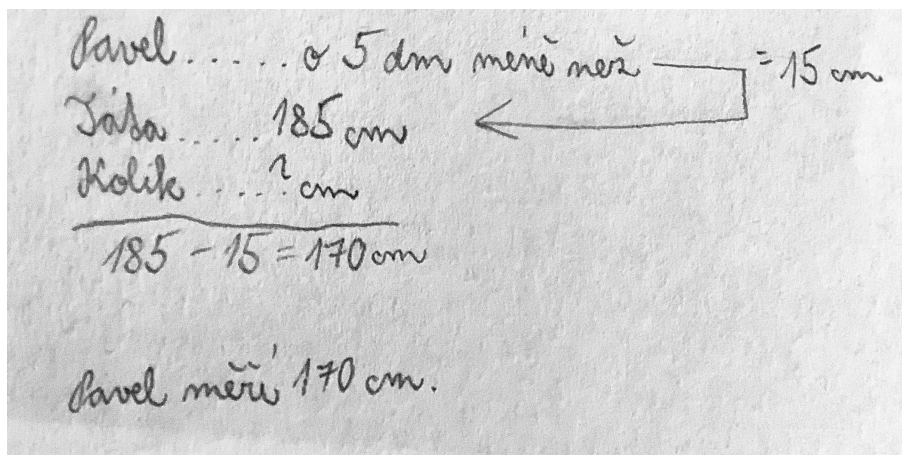 Pavel ..... o 5 dm méně než = 15 cm
Táta ..... 185 cm
Kolik .... ? cm
185 - 15 = 170 cm
Pavel měří 170 cm.